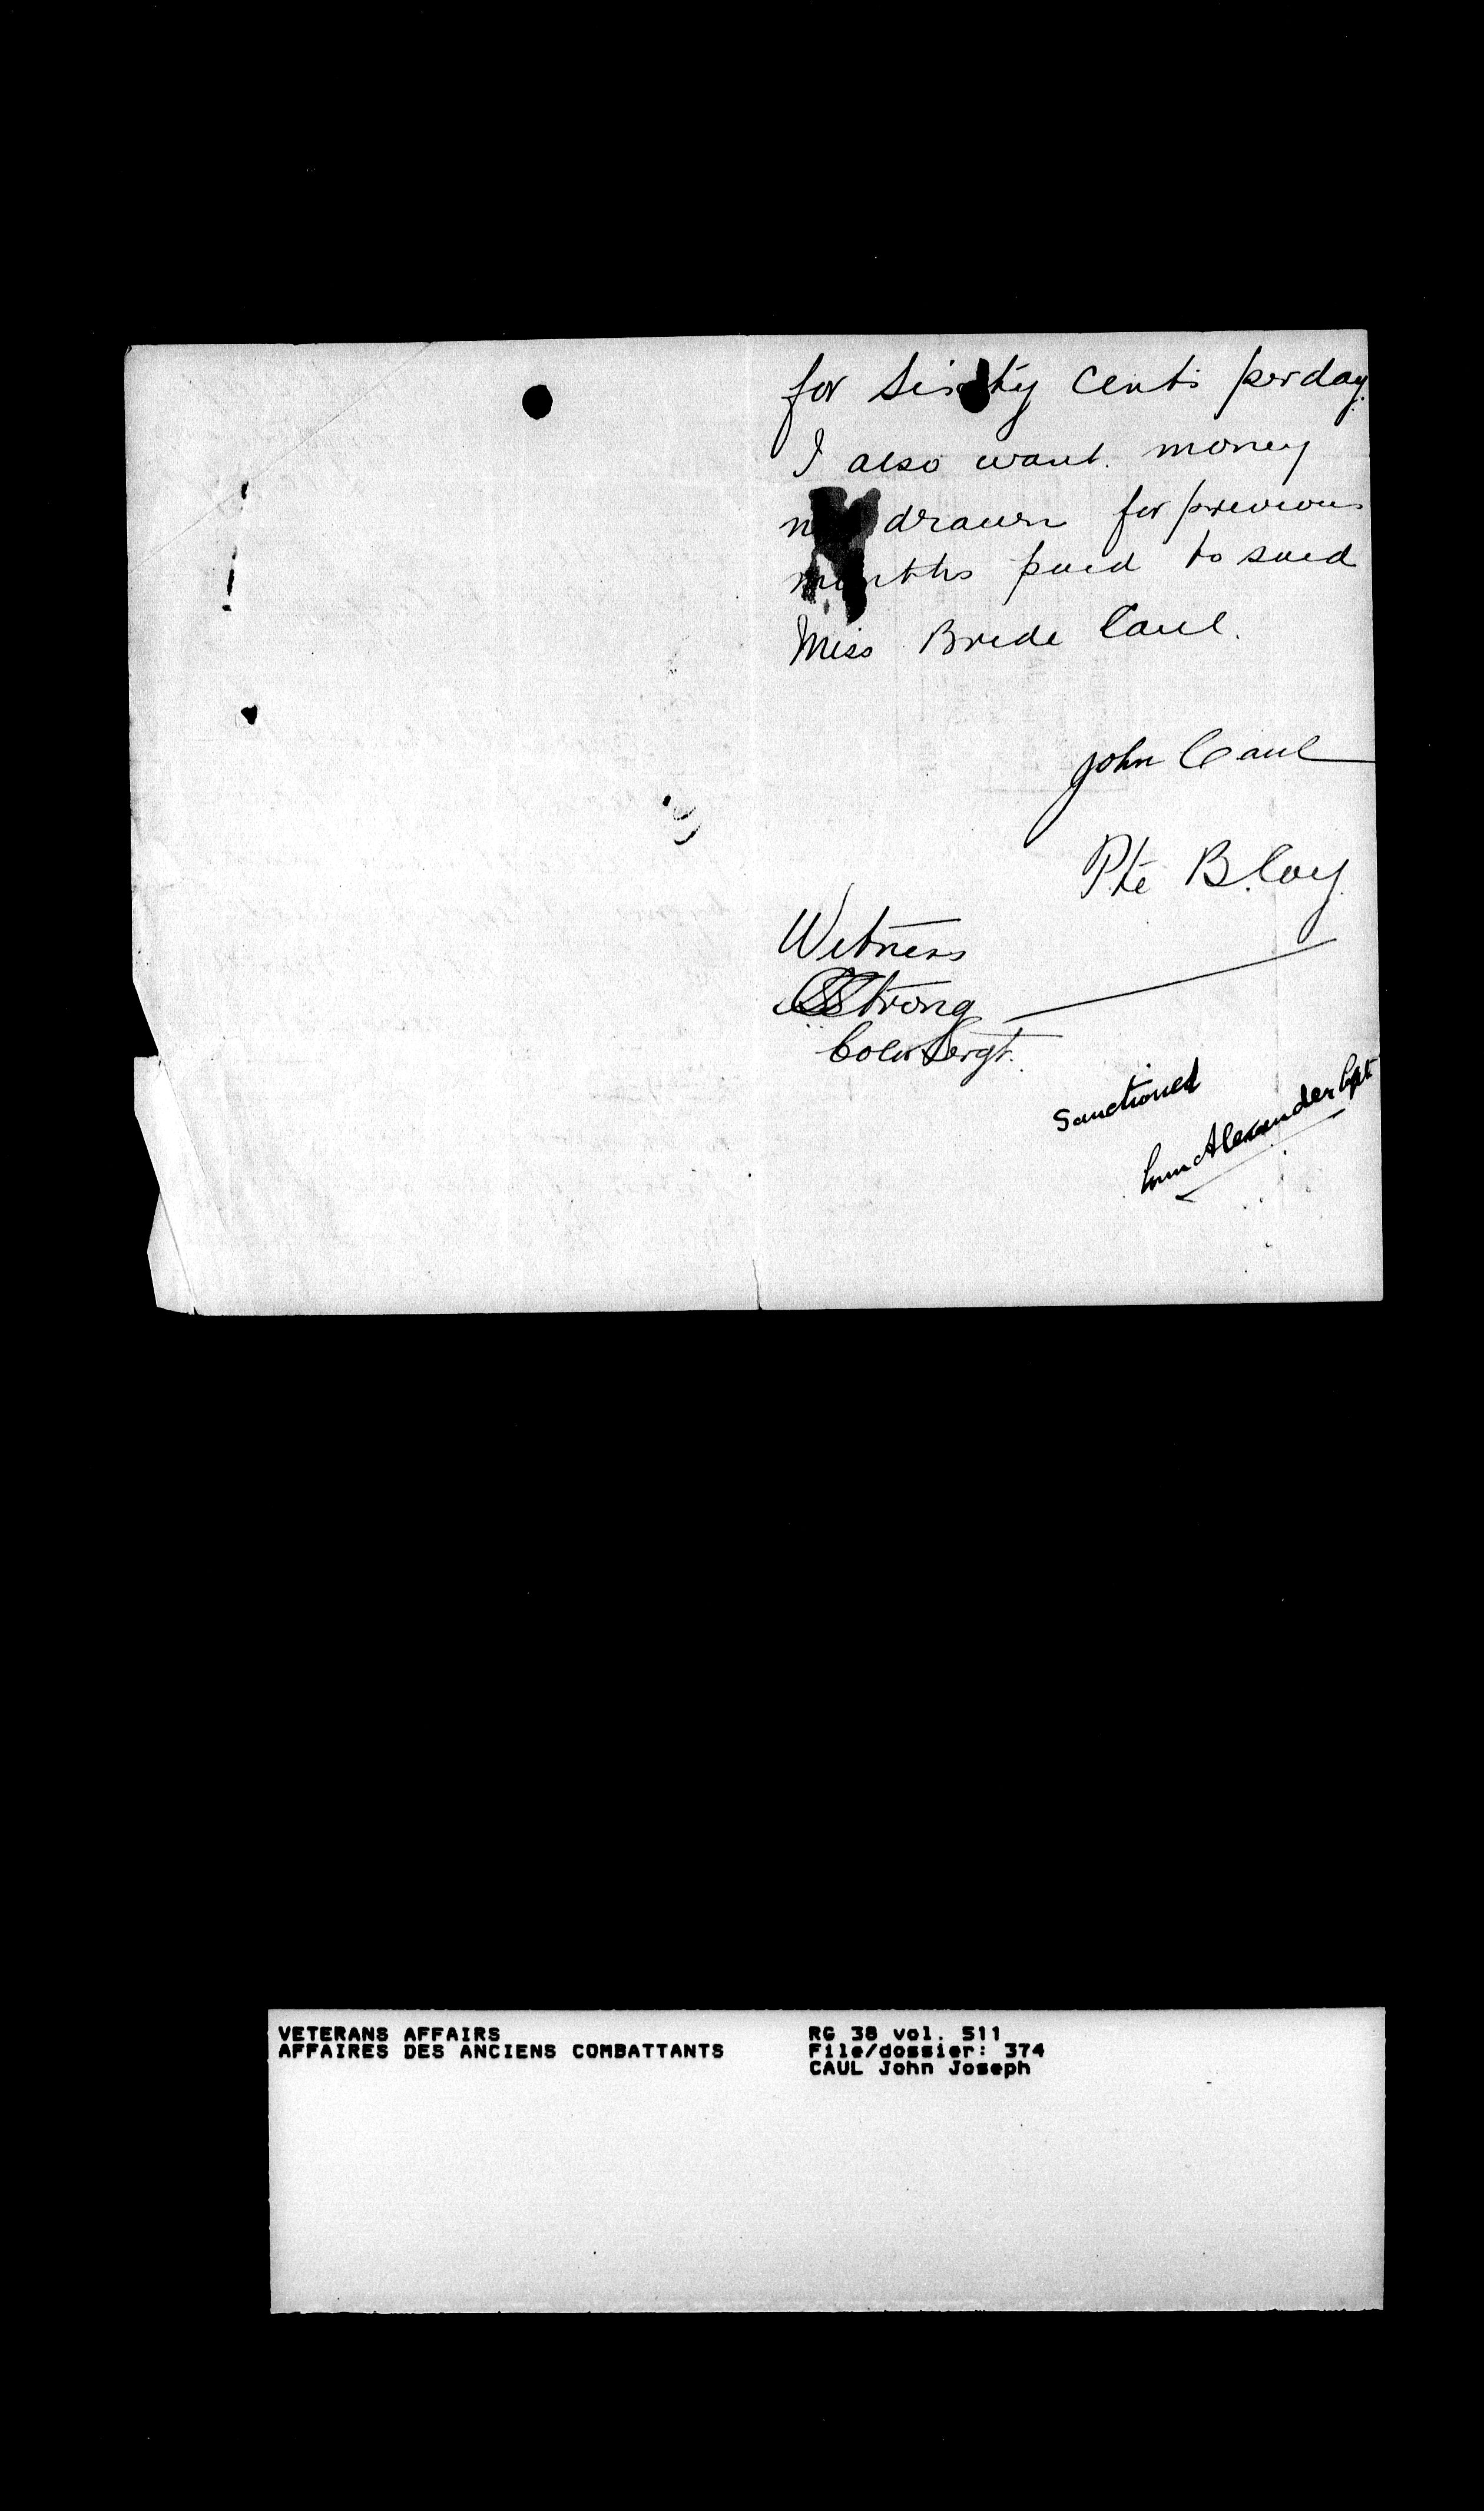 for Sixty Cents per day.
I also want money
drawn for previous
months paid to said
Miss Bride Caul.
John Caul
Pte B. Coy.
Witness
Strong
Color Sergt.
Sanctioned
Alexander Capt
VETERANS AFFAIRS
AFFAIRES DES ANCIENS COMBATTANTS
RG 38 vol. 511
File/dossier: 374
CAUL John Joseph